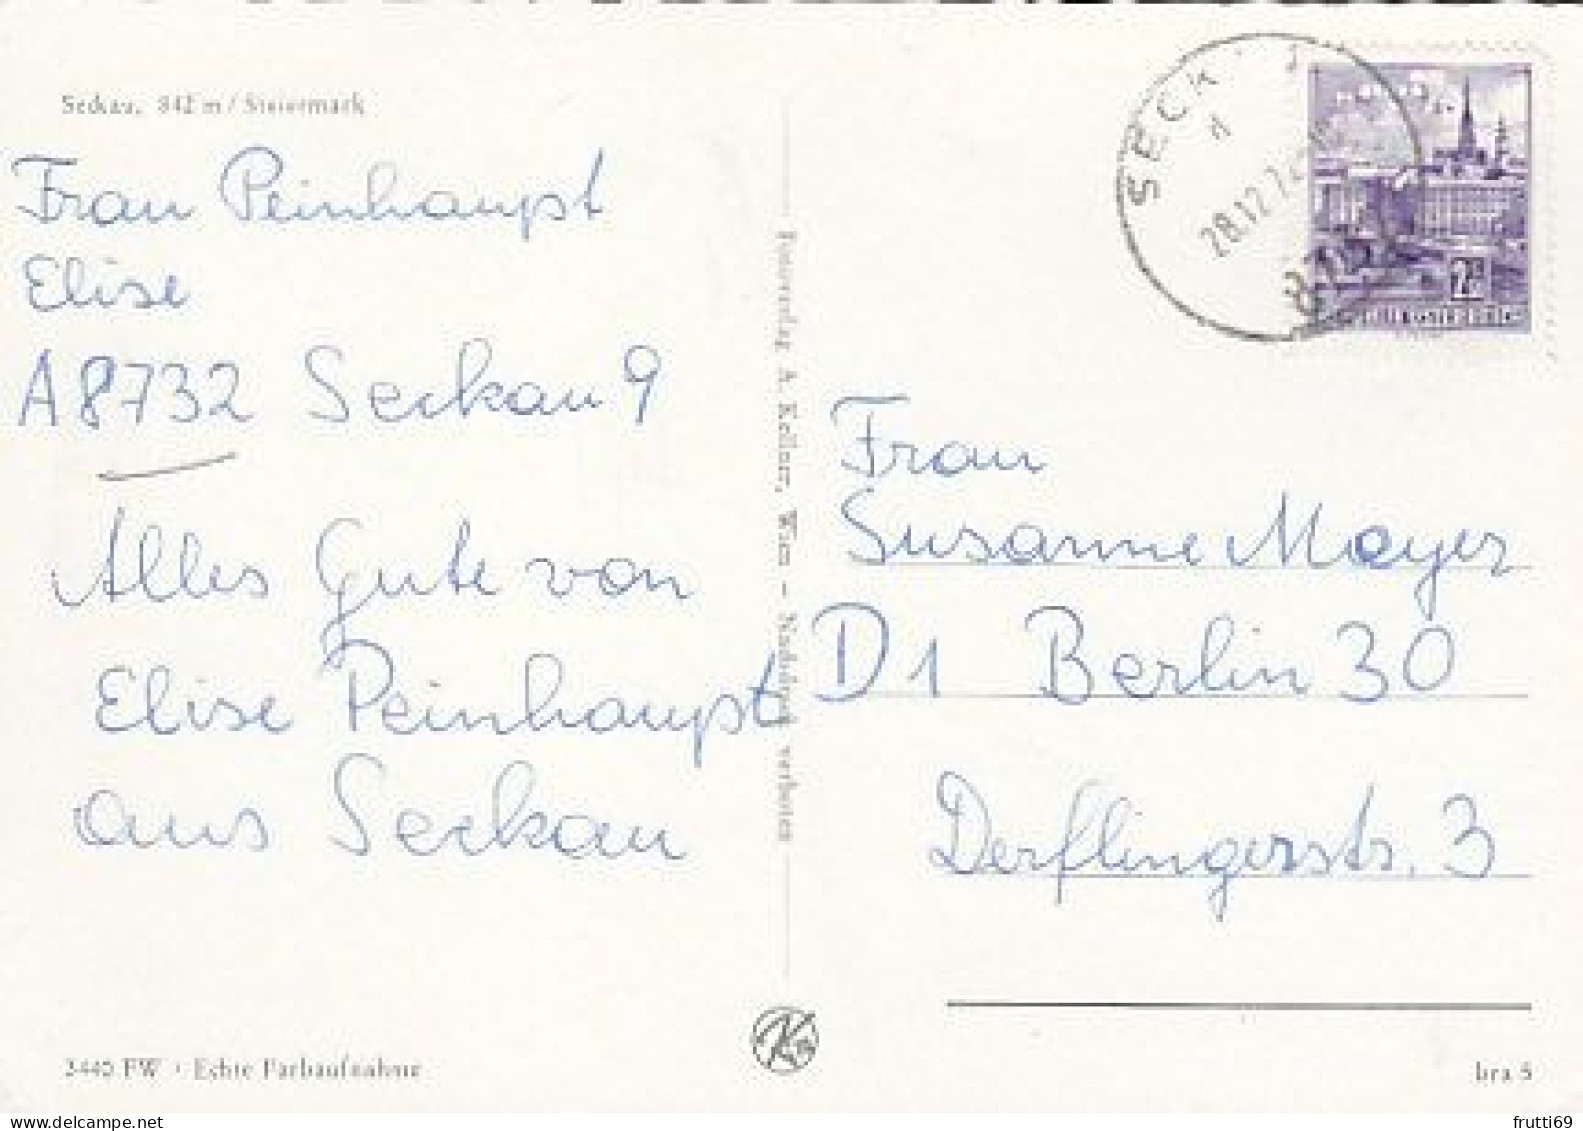 Seckau, 842 m / Steiermark
Frau Peinhaupt
Elise
A8732 Seckau 9
Alles Gute von
Elise Peinhaupt
aus Seckau
3440 FW · Echte Farbaufnahme
Fotoverlag A. Kellner, Wien – Nachdruck verboten
28.12.7
Frau
Susanne Mayer
D1 Berlin 30
Derflingerstr. 3
bra 5
frutti69